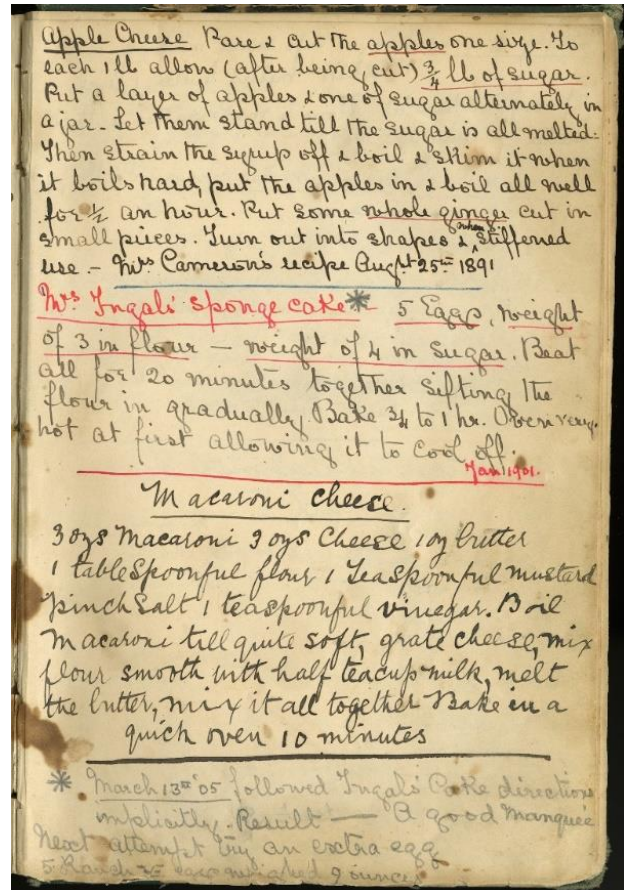 Apple Cheese Pare & cut the apples one size. To
each 1 lb allow (after being cut) 3/4 lb of sugar.
Put a layer of apples & one of sugar alternately in
a jar. Let them stand till the sugar is all melted.
Then strain the syrup off & boil & skim it when
it boils hard, put the apples in & boil all well
for 1/2 an hour. Put some whole ginger cut in
small pieces. Turn out into shapes & when stiffened
use - Mrs Cameron's recipe Augst 25th 1891
Mrs Ingals' sponge cake * 5 Eggs, weight
of 3 in flour — weight of 4 in sugar. Beat
all for 20 minutes together sifting the
flour in gradually. Bake 3/4 to 1 hr. Oven very
hot at first allowing it to cool off.
Jan 1901.
Macaroni cheese.
3 ozs Macaroni 3 ozs Cheese 1 oz butter
1 tableSpoonful flour 1 Teaspoonful mustard
pinch Salt 1 teaspoonful vinegar. Boil
Macaroni till quite soft, grate cheese, mix
flour smooth with half teacup milk, melt
the butter, mix it all together Bake in a
quick oven 10 minutes
* March 13th '05 followed Ingals' Cake directions
implicitly. Result — A good Manquée
Next attempt try an extra egg
5 eggs weighed 9 ounces